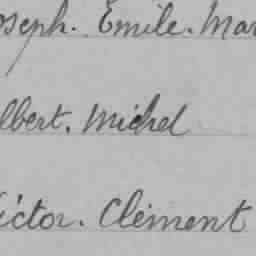 oseph. Emile. Mar
lbert. Michel
ictor. Clément